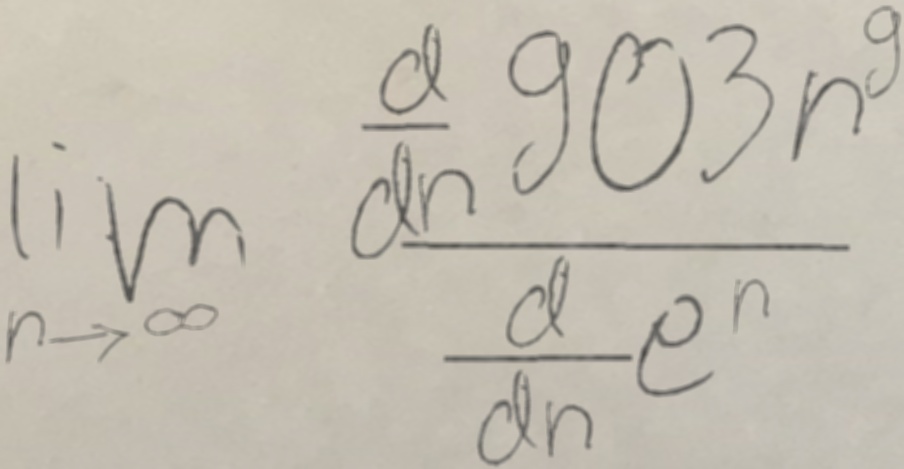 \lim_{n \to \infty} \frac{\frac{d}{dn} 903 n^9}{\frac{d}{dn} e^n}